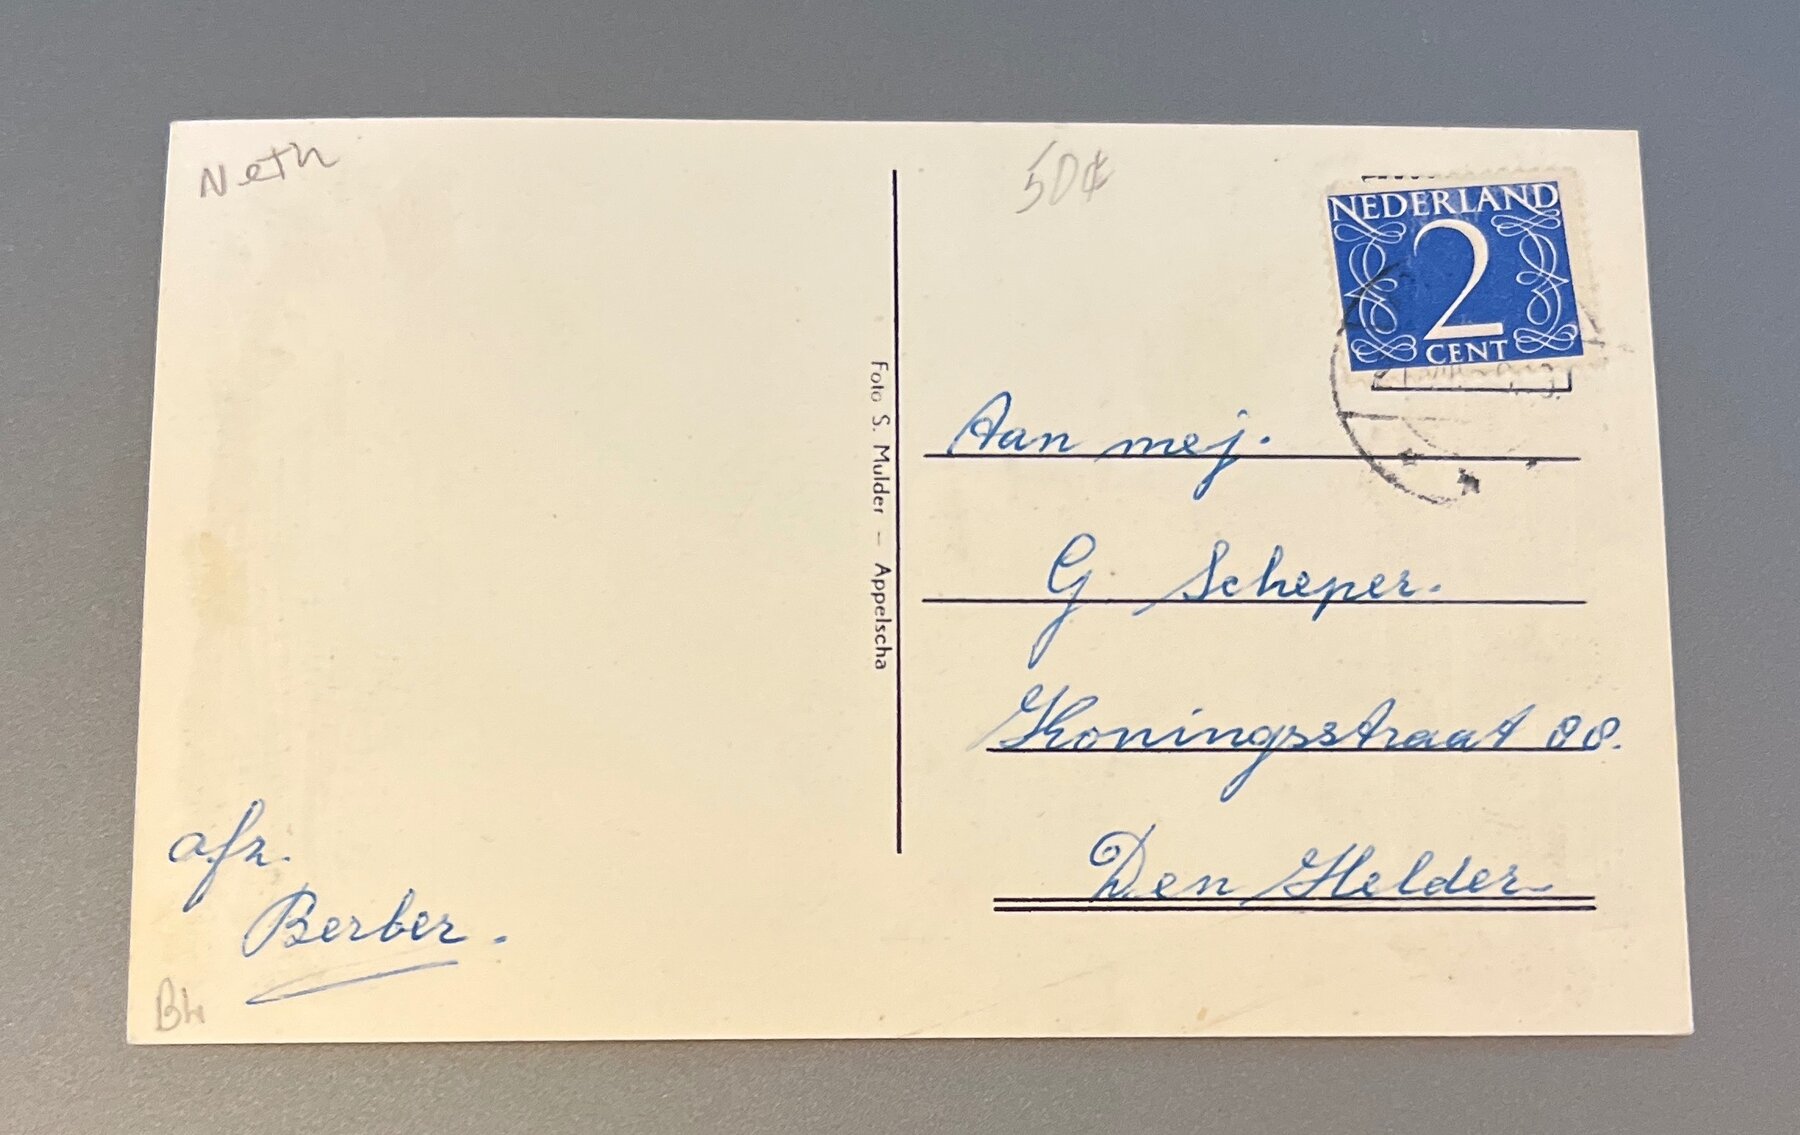 Neth
50¢
NEDERLAND
2
CENT
Foto S. Mulder – Appelscha
Aan mej.
G. Scheper.
Koningsstraat 88.
Den Helder
afz.
Berber.